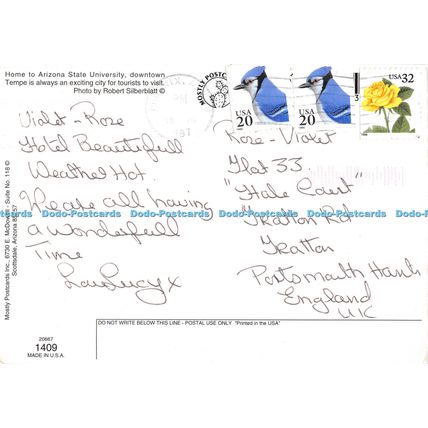 Home to Arizona State University, downtown
Tempe is always an exciting city for tourists to visit.
Photo by Robert Silberblatt ©
MOSTLY POSTCARDS
USA
20
USA
20
USA 32
Violet-Rose
Hotel Beautifull
Weather Hot
Please all having
a wonderfull
Time
LouLucy x
Rose-Violet
Flat 33
"Hale Court"
Fratton Rd
Fratton
Portsmouth Hants
England
UK
Dodo-Postcards Dodo-Postcards Dodo-Postcards Dodo-Postcards Dodo-Postcards
Mostly Postcards Inc., 6730 E. McDowell - Suite No. 118 ©
Scottsdale, Arizona 85257
DO NOT WRITE BELOW THIS LINE - POSTAL USE ONLY "Printed in the USA"
20667
1409
MADE IN U.S.A.